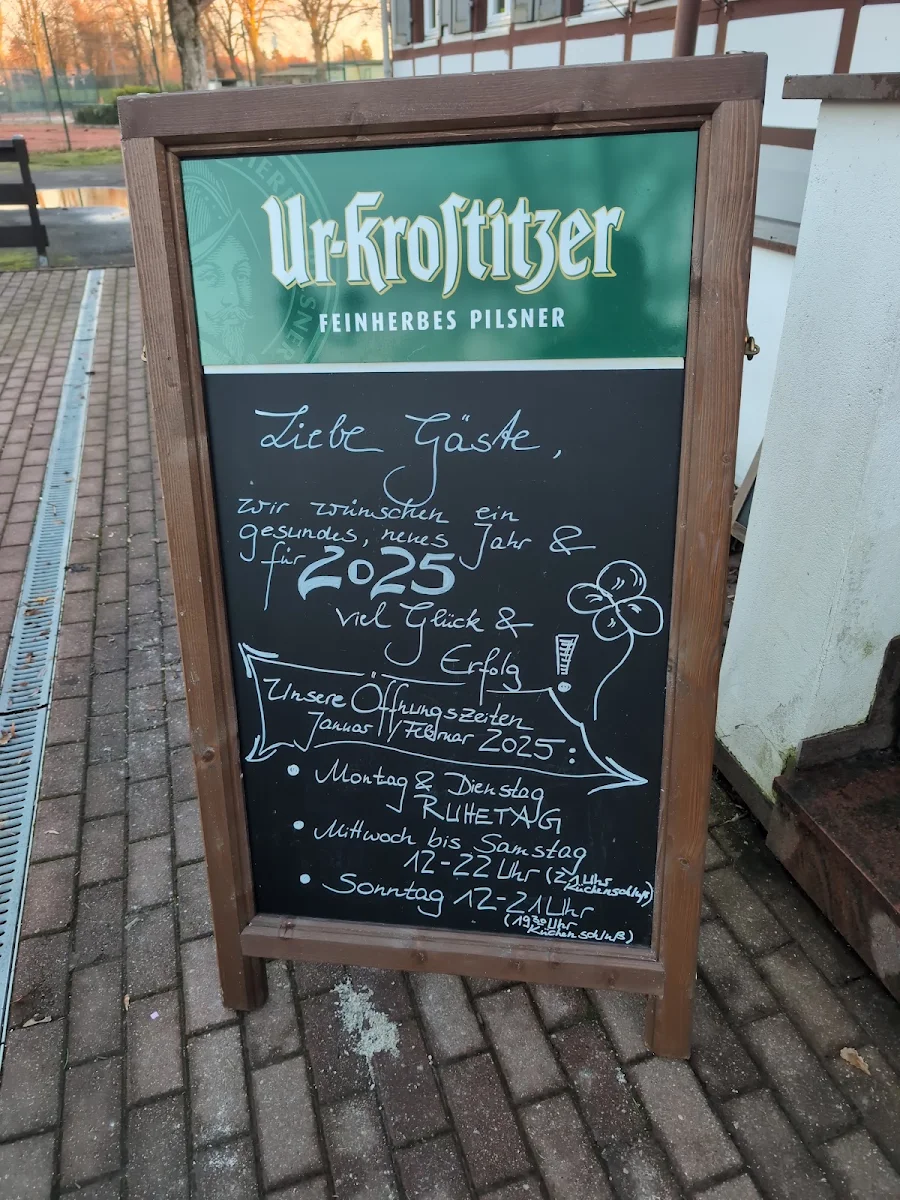 Ur-Krostitzer
FEINHERBES PILSNER
Liebe Gäste,
wir wünschen ein
gesundes, neues Jahr &
für 2025
viel Glück &
Erfolg !
Unsere Öffnungszeiten
Januar / Februar 2025:
• Montag & Dienstag
RUHETAG
• Mittwoch bis Samstag
12-22 Uhr (21 Uhr
Küchenschluß)
• Sonntag 12-21 Uhr
(19³⁰ Uhr
Küchenschluß)